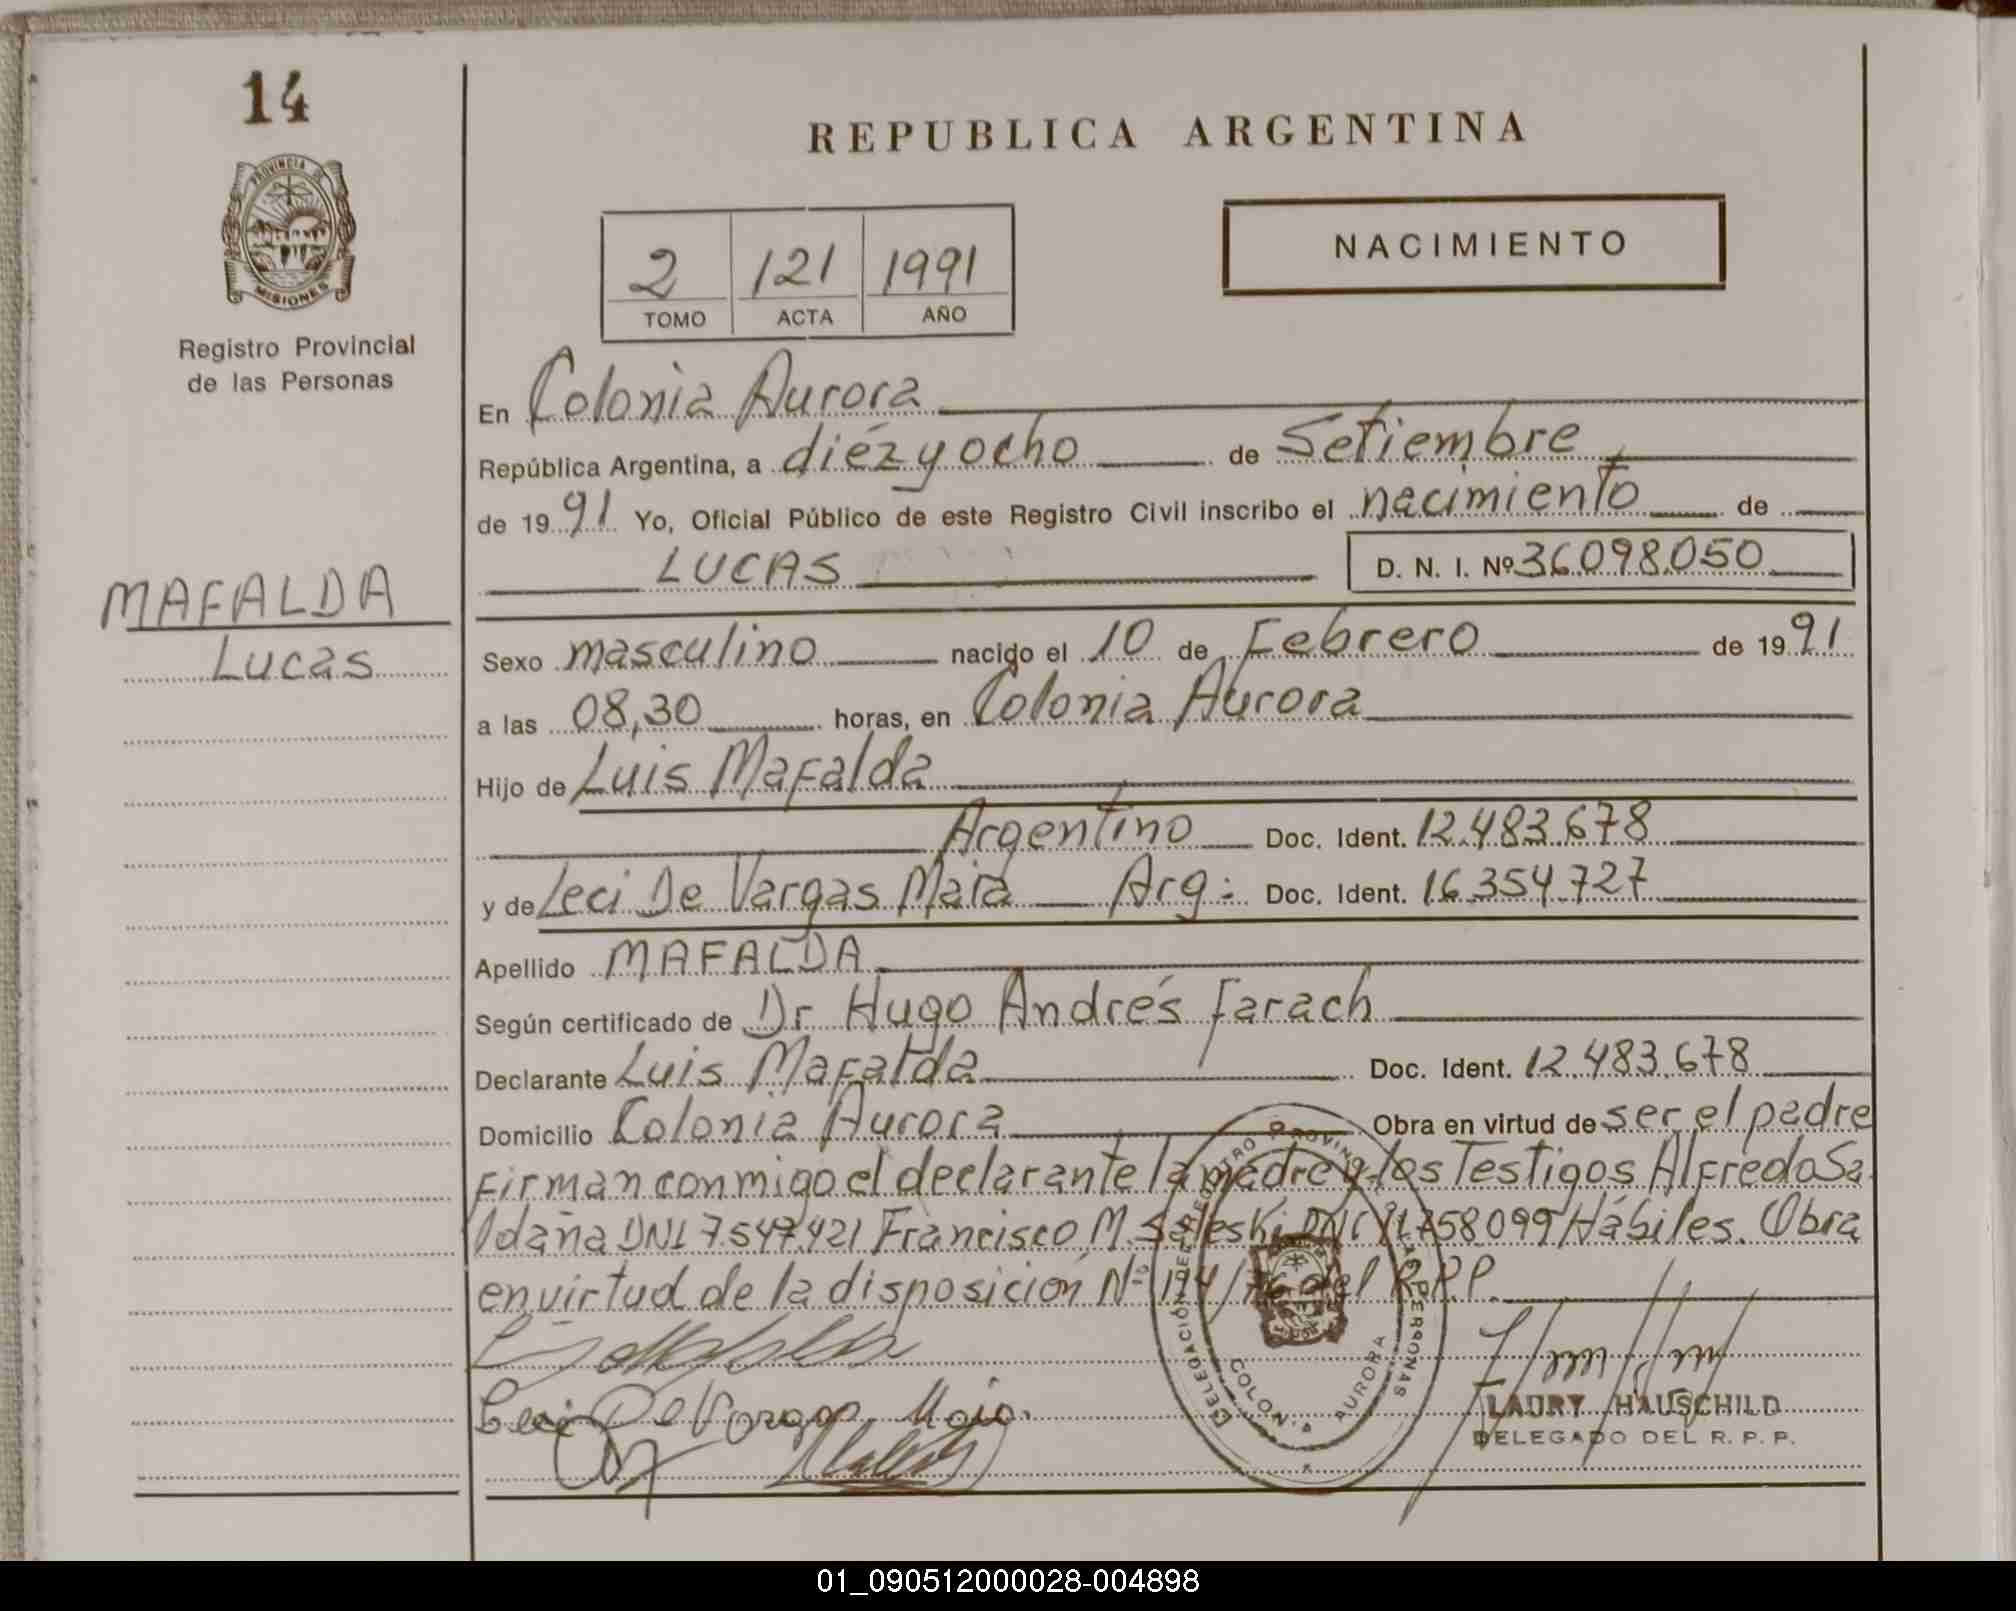 14
PROVINCIA DE
MISIONES
Registro Provincial
de las Personas
MAFALDA
Lucas
REPUBLICA ARGENTINA
2 121 1991
TOMO ACTA AÑO
NACIMIENTO
En Colonia Aurora
República Argentina, a diéz y ocho de Setiembre
de 1991 Yo, Oficial Público de este Registro Civil inscribo el nacimiento de
LUCAS D. N. I. Nº 36.098.050
Sexo masculino nacido el 10 de Febrero de 1991
a las 08,30 horas, en Colonia Aurora
Hijo de Luis Mafalda
Argentino Doc. Ident. 12.483.678
y de Leci De Vargas Maia Arg: Doc. Ident. 16.354.727
Apellido MAFALDA
Según certificado de Dr Hugo Andrés Farach
Declarante Luis Mafalda Doc. Ident. 12.483.678
Domicilio Colonia Aurora Obra en virtud de ser el padre
Firman conmigo el declarante la madre y los Testigos Alfredo Sa
ldaña DNI 7.547.421 Francisco M. Saleski DNI 758.099 Hábiles. Obra
en virtud de la disposición Nº 174/76 del R.P.P.
Leci De Vargas Maia.
DELEGACIÓN DEL REGISTRO PROVINCIAL DE LAS PERSONAS
COLONIA AURORA
LAURY HAUSCHILD
DELEGADO DEL R. P. P.
01_090512000028-004898